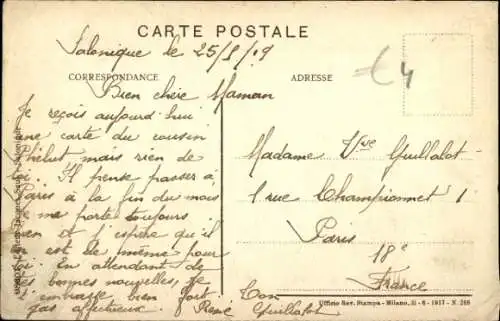 CARTE POSTALE
Salonique le 25/5/19
CORRESPONDANCE
ADRESSE
€4
Bien chère Maman
Je reçois aujourd'hui
une carte du cousin
mais rien de
toi. Il pense passer à
Paris à la fin du mois
Je me porte toujours
bien et j'espère qu'il
en est de même pour
toi. En attendant de
tes bonnes nouvelles, je
t'embrasse bien fort
affectueux. René Guillalot
Ton
Madame Vve Guillalot
1 rue Championnet 1
Paris
18e
France
Ufficio Rev. Stampa - Milano, 21-6-1917 - N. 268